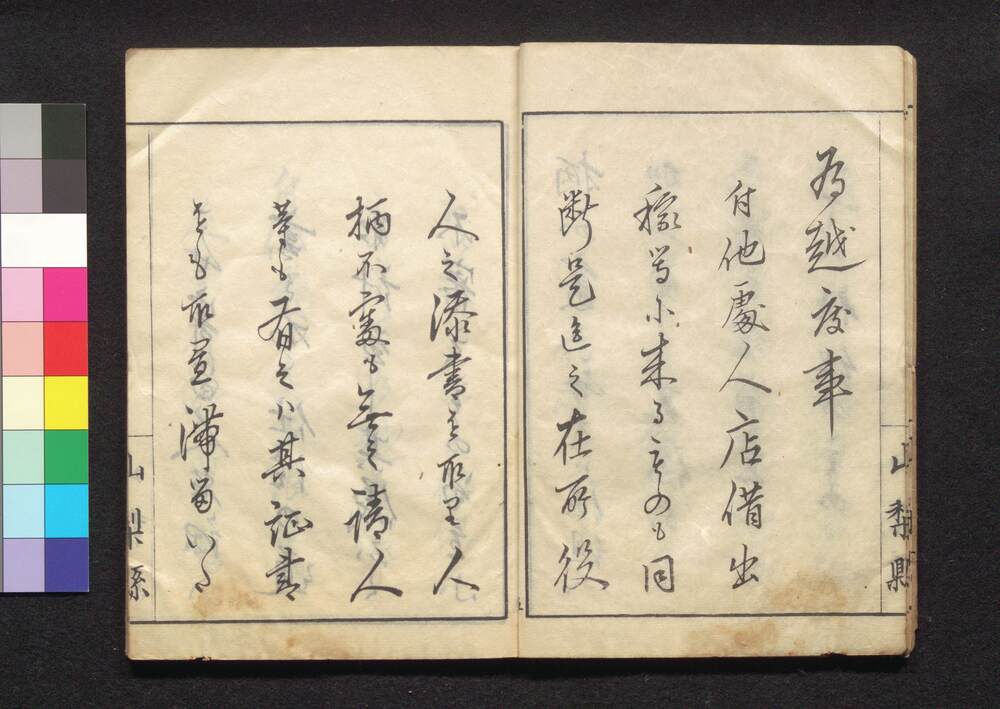 山梨縣
為越度事
付他處人店借出
稼等に来るものも同
断是迄之在所役
人之添書を取里人
柄不審も無之請人
等も有之ハ其証書
をも取置滞留いた
山梨縣